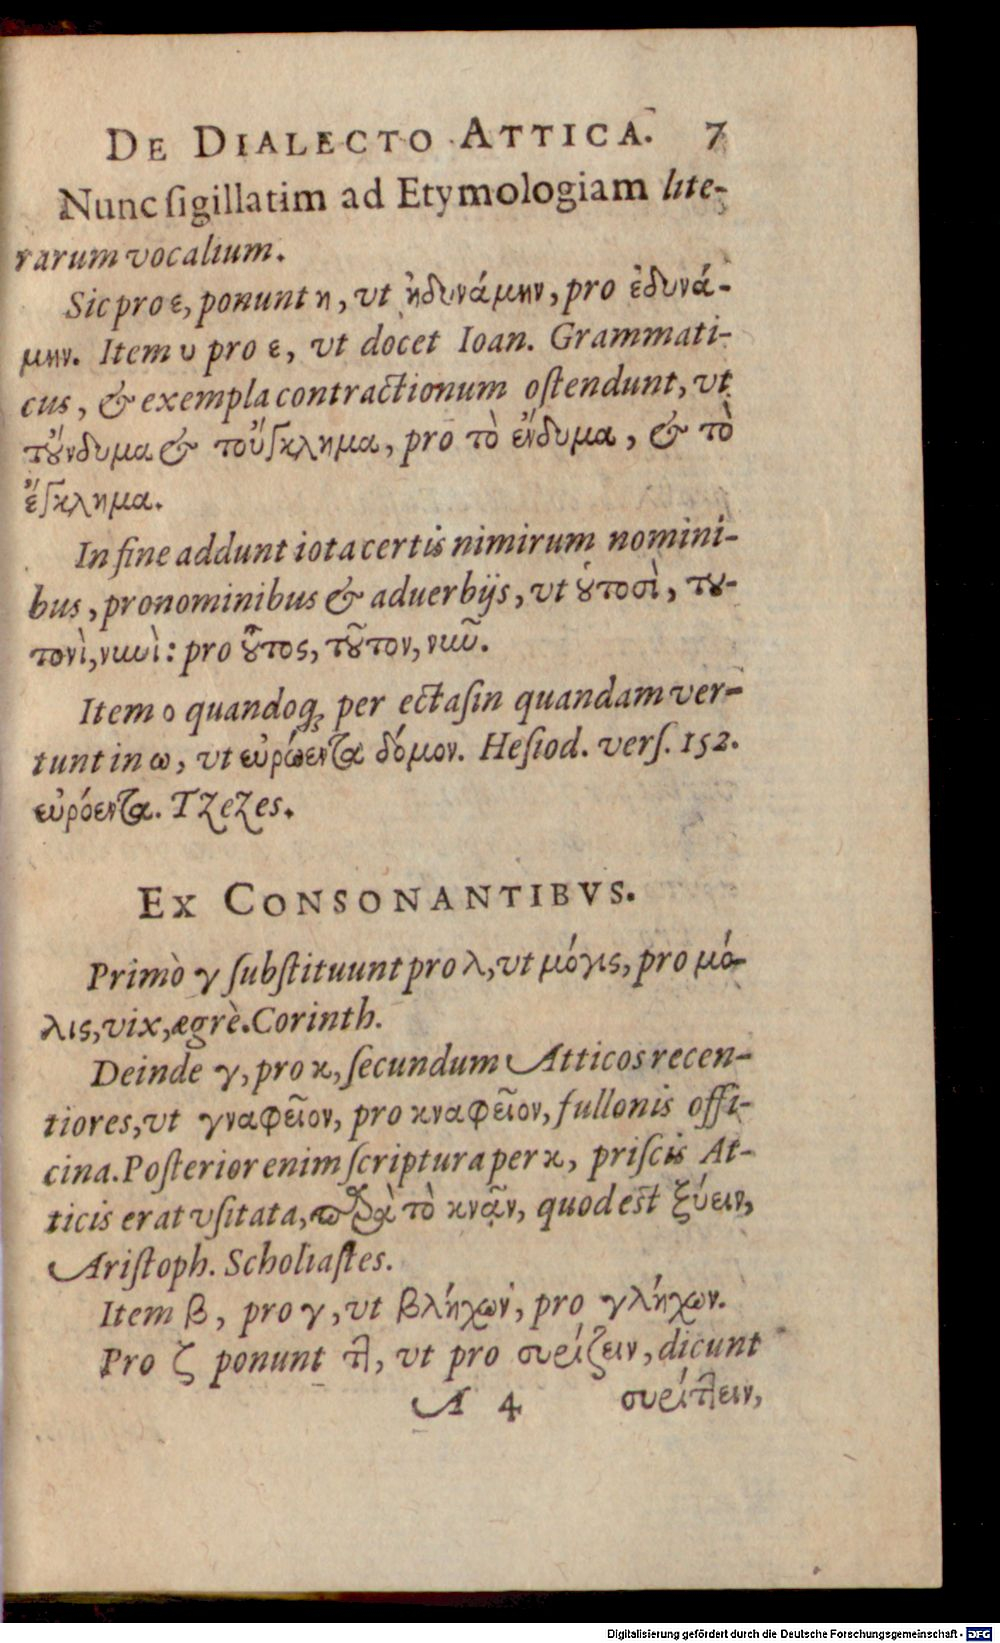 DE DIALECTO ATTICA. 7
Nunc ſigillatim ad Etymologiam lite-
rarum vocalium.
Sic pro ε, ponunt η, vt ἠδυνάμην, pro ἐδυνά-
μην. Item υ pro ε, vt docet Ioan. Grammati-
cus, & exempla contractionum oſtendunt, vt
τοὔνδυμα & τοὔσκλημα, pro τὸ ἔνδυμα, & τὸ
ἔσκλημα.
In fine addunt iota certis nimirum nomini-
bus, pronominibus & aduerbijs, vt οὑτοσὶ, του-
τονὶ, νυνὶ: pro οὗτος, τοῦτον, νῦν.
Item ο quandoq; per ectaſin quandam ver-
tunt in ω, vt εὐρώεντα δόμον. Heſiod. verſ. 152.
εὐρόεντα. Tzezes.
EX CONSONANTIBVS.
Primò γ ſubſtituunt pro λ, vt μόγις, pro μό-
λις, vix, ægrè. Corinth.
Deinde γ, pro κ, ſecundum Atticos recen-
tiores, vt γναφεῖον, pro κναφεῖον, fullonis offi-
cina. Poſterior enim ſcriptura per κ, priſcis At-
ticis erat vſitata, παρὰ τὸ κνᾷν, quod est ξύειν,
Ariſtoph. Scholiaſtes.
Item β, pro γ, vt βλήχων, pro γλήχων.
Pro ζ ponunt ττ, vt pro συρίζειν, dicunt
A 4 συρίττειν,
Digitalisierung gefördert durch die Deutsche Forschungsgemeinschaft - DFG